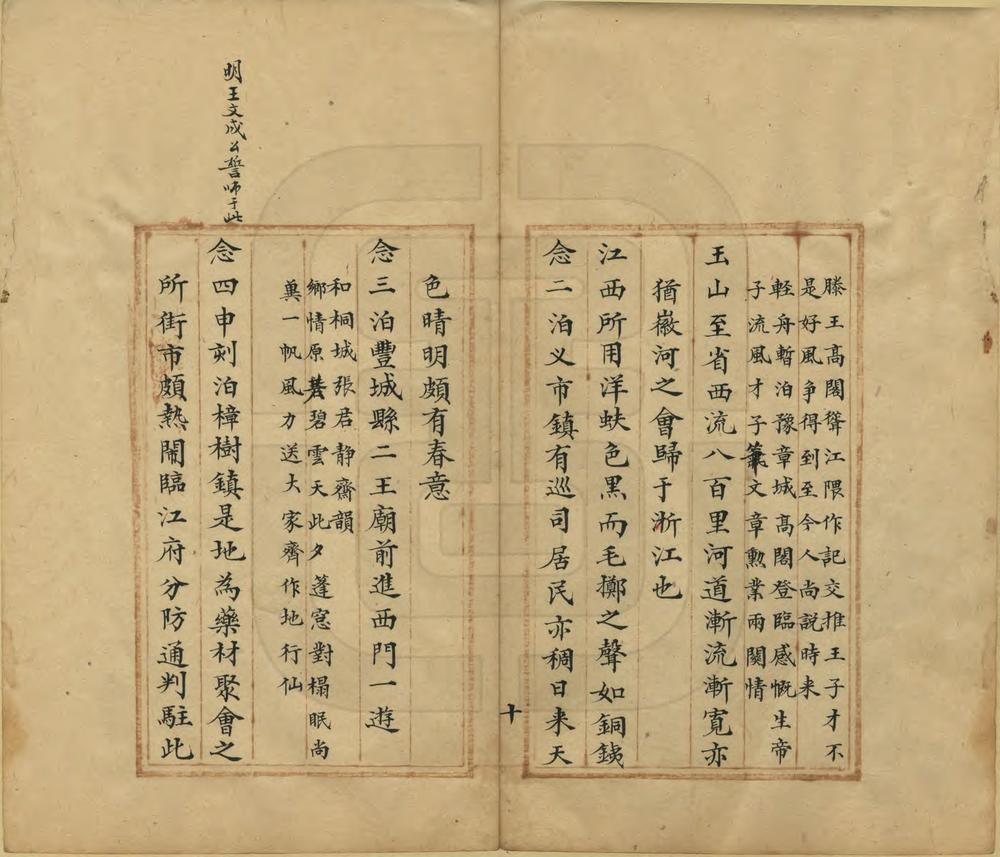 滕王高閣聳江隈作記交推王子才不
是好風爭得到至今人尚說時来
輕舟暫泊豫章城高閣登臨感慨生帝
子流風才子筆文章勲業兩関情
玉山至省西流八百里河道漸流漸寬亦
猶徽河之會歸于浙江也
江西所用洋蚨色黑而毛擲之聲如銅錢
念二泊义市鎮有巡司居民亦稠日来天
十
色晴明頗有春意
念三泊豐城縣二王廟前進西門一遊
和桐城張君静齋韻
鄉情原共碧雲天此夕蓬窓對榻眠尚
兾一帆風力送大家齊作地行仙
念四申刻泊樟樹鎮是地為藥材聚會之
所街市頗熱鬧臨江府分防通判駐此
明王文成公誓师于此